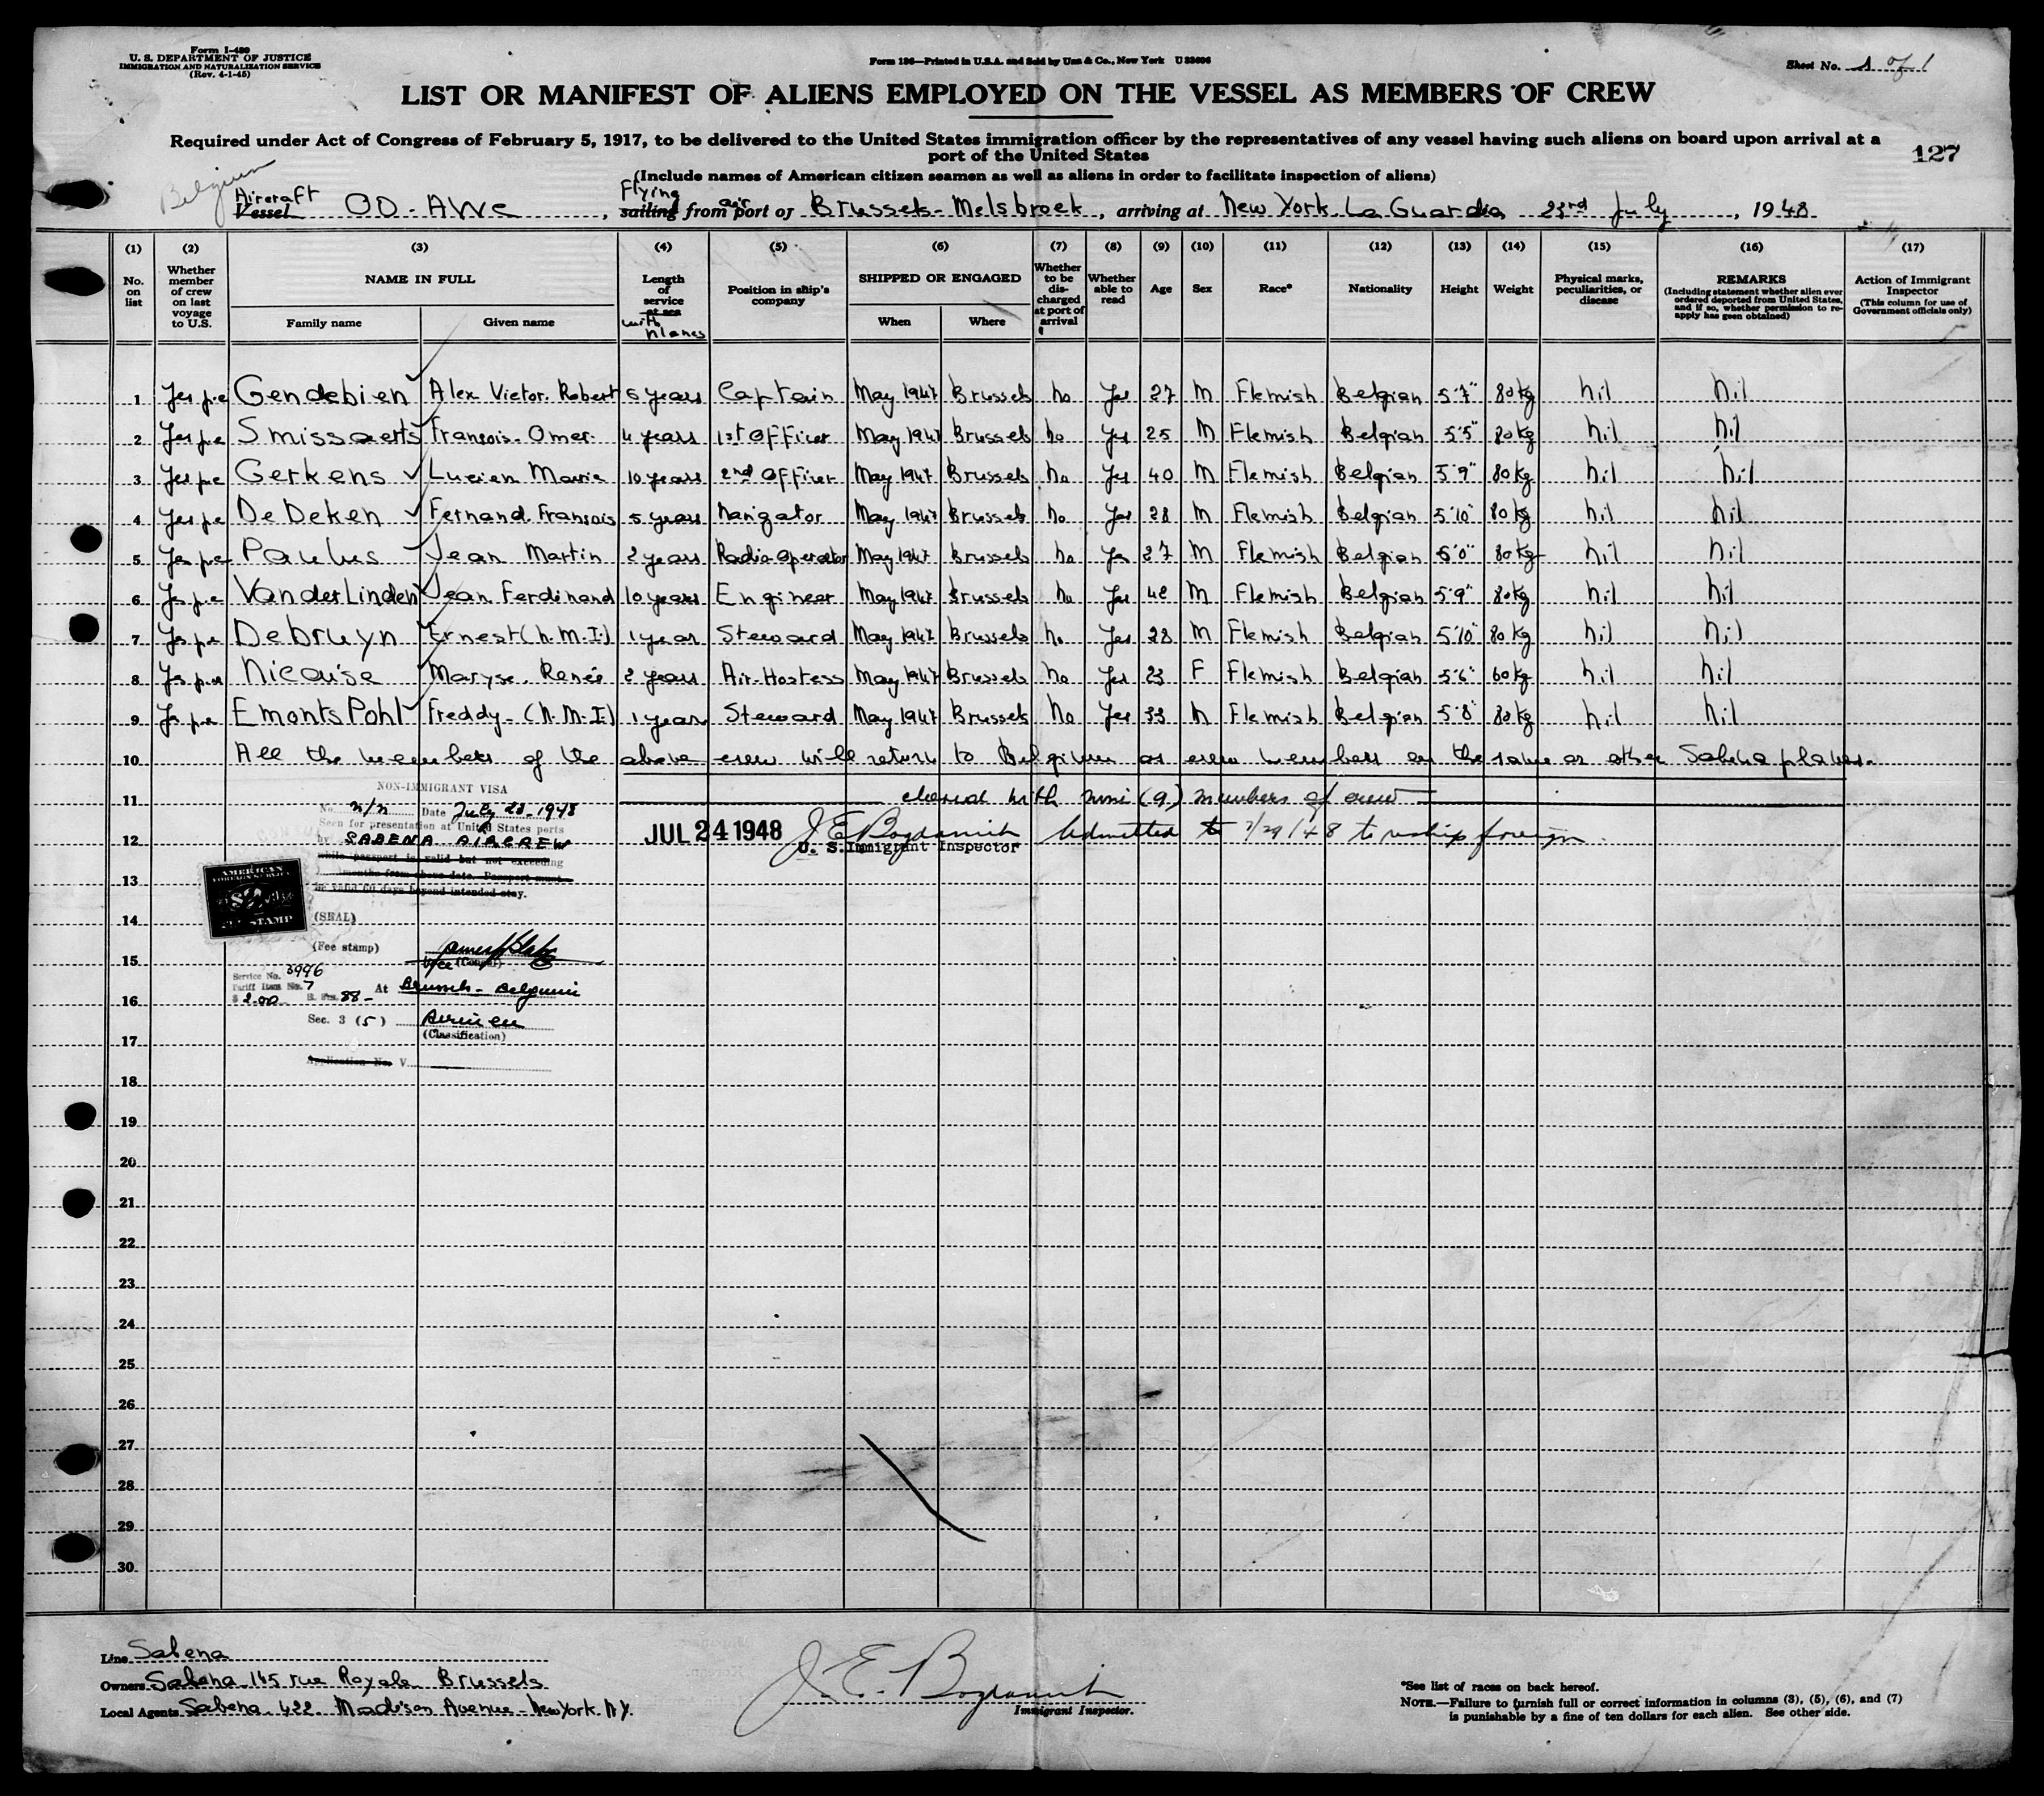 Form I-480
U. S. DEPARTMENT OF JUSTICE
IMMIGRATION AND NATURALIZATION SERVICE
(Rev. 4-1-45)
Form 186—Printed in U.S.A. and Sold by Unz & Co., New York
Sheet No. 1 of 1
LIST OR MANIFEST OF ALIENS EMPLOYED ON THE VESSEL AS MEMBERS OF CREW
Required under Act of Congress of February 5, 1917, to be delivered to the United States immigration officer by the representatives of any vessel having such aliens on board upon arrival at a
port of the United States
127
(Include names of American citizen seamen as well as aliens in order to facilitate inspection of aliens)
Belgium
Aircraft Flying air
Vessel OO-AWC, sailing from port of Brussels-Melsbroek, arriving at New York. La Guardia 23rd July, 1948
(1) (2) (3) (4) (5) (6) (7) (8) (9) (10) (11) (12) (13) (14) (15) (16) (17)
No. on list
Whether member of crew on last voyage to U.S.
NAME IN FULL
Family name
Given name
Length of service at sea with planes
Position in ship's company
SHIPPED OR ENGAGED
When
Where
Whether to be discharged at port of arrival
Whether able to read
Age
Sex
Race*
Nationality
Height
Weight
Physical marks, peculiarities, or disease
REMARKS
(Including statement whether alien ever ordered deported from United States, and if so, whether permission to re-apply has been obtained)
Action of Immigrant Inspector
(This column for use of Government officials only)
1 Yes p.e Gendebien Alex Victor. Robert 5 years Captain May 1947 Brussels No Yes 27 M Flemish Belgian 5'7" 80kg nil nil
2 Yes p.e Smissaerts François. Omer. 4 years 1st Officer May 1947 Brussels No Yes 25 M Flemish Belgian 5'5" 80kg nil nil
3 Yes p.e Gerkens Lucien Marie 10 years 2nd Officer May 1947 Brussels No Yes 40 M Flemish Belgian 5'9" 80kg nil nil
4 Yes p.e De Deken Fernand. François 5 years Navigator May 1947 Brussels No Yes 28 M Flemish Belgian 5'10" 80kg nil nil
5 Yes p.e Paulus Jean Martin 2 years Radio Operator May 1947 Brussels No Yes 27 M Flemish Belgian 80kg nil nil
6 Yes p.e Van der Linden Jean Ferdinand 10 years Engineer May 1947 Brussels No Yes 42 M Flemish Belgian 5'9" 80kg nil nil
7 Yes p.e Debruyn Ernest (N.M.I.) 1 year Steward May 1947 Brussels No Yes 28 M Flemish Belgian 5'10" 80kg nil nil
8 Yes p.e Nicaise Maryse. Renée 2 years Air-Hostess May 1947 Brussels No Yes 23 F Flemish Belgian 5'6" 60kg nil nil
9 Yes p.e Emonts Pohl Freddy. (N.M.I.) 1 year Steward May 1947 Brussels No Yes 33 M Flemish Belgian 5'8" 80kg nil nil
10 All the members of the above crew will return to Belgium as crew members on the same or other Sabena planes.
11 closed with nine (9) members of crew
12 JUL 24 1948 J. E. Bogdanich Admitted to 7/29/48 to reship foreign
U. S. Immigrant Inspector
NON-IMMIGRANT VISA
No. n/n Date July 23. 1948
Seen for presentation at United States ports
by SABENA AIRCREW
while passport is valid but not exceeding
months from above date. Passport must
be valid 60 days beyond intended stay.
AMERICAN
FOREIGN SERVICE
$2
STAMP
(SEAL)
(Fee stamp)
Vice (Consul)
Service No. 3996
Tariff Item No. 7
$ 2.00 88-
At Brussels - Belgium
Sec. 3 (5) Airmen
(Classification)
Application No. V
13
14
15
16
17
18
19
20
21
22
23
24
25
26
27
28
29
30
Line Sabena
Owners Sabena. 145 rue Royale Brussels
Local Agents Sabena. 422. Madison Avenue - New York. N.Y.
J. E. Bogdanich
Immigrant Inspector.
*See list of races on back hereof.
NOTE.—Failure to furnish full or correct information in columns (3), (5), (6), and (7)
is punishable by a fine of ten dollars for each alien. See other side.